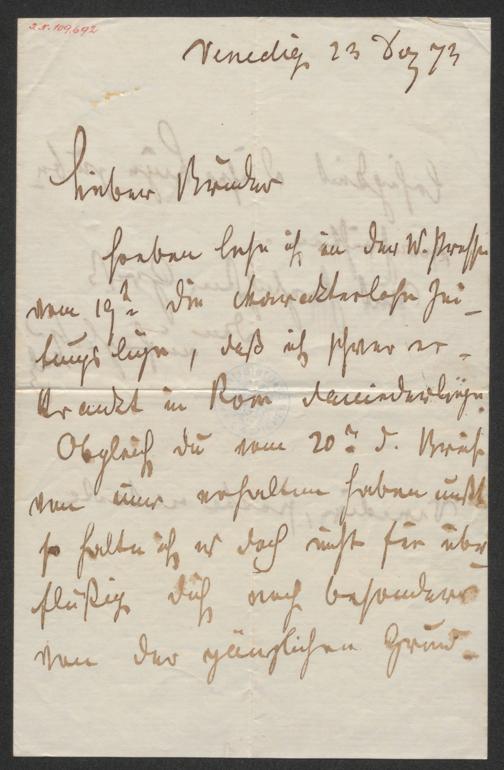 I.N. 109.692
Venedig 23 Dez 73
Lieber Bruder
soeben lese ich in der W. Presse
vom 19t. die charakterlose Zei-
tungslüge, daß ich schwer er-
krankt in Rom daniederliege.
Obgleich du vom 20t. d. Brief
von mir erhalten haben mußt
so halte ich es doch nicht für über
flüßig dich noch besonders
von der gänzlichen Grund-